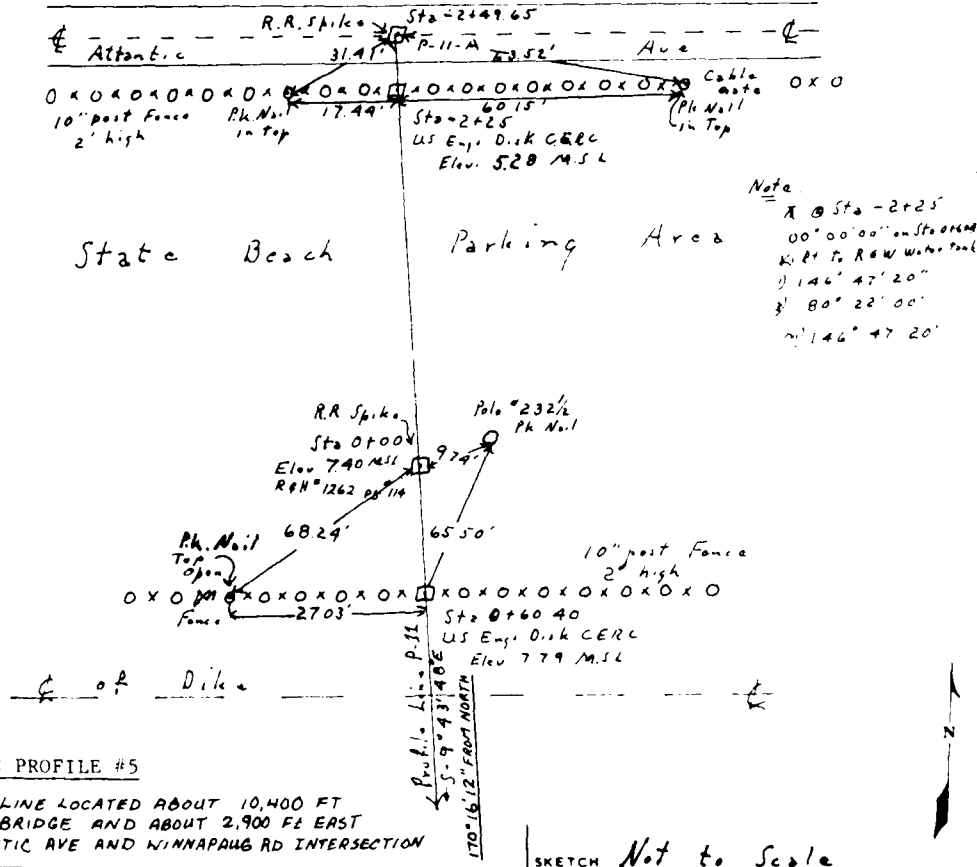 R.R. Spike
Sta -2+49.65
Atlantic
Ave
31.41'
P-11-A
63.52'
Cable
Gate
10" post Fence
2' high
P.k. Nail
in top
17.44'
60.15'
Pk Nail
in Top
Sta -2+25
US Eng. Disk CERC
Elev. 5.28 M.S.L
Note
⊼ @ Sta -2+25
00° 00' 00" on Sta 0+60.4
Rt to R & W Water Tank
1) 146° 47' 20"
80° 22' 00"
146° 47 20'
State Beach Parking Area
R.R Spike
Sta 0+00
Elev 7.40 MSL
Pole #232 1/2
Pk Nail
9.74'
68.24'
65.50'
P.k. Nail
Top
Open
Fence
10" post Fence
2' high
27.03'
Sta 0+60 40
US Eng. Disk CERC
Elev 7 79 M.S.L
℄ of Dike
℄
Profile Line P-11
S-9° 43' 48" E
170° 16' 12" FROM NORTH
N
PROFILE #5
LINE LOCATED ABOUT 10,400 FT
BRIDGE AND ABOUT 2,900 Ft EAST
TIC AVE AND WINNAPAUG RD INTERSECTION
SKETCH Not to Scale